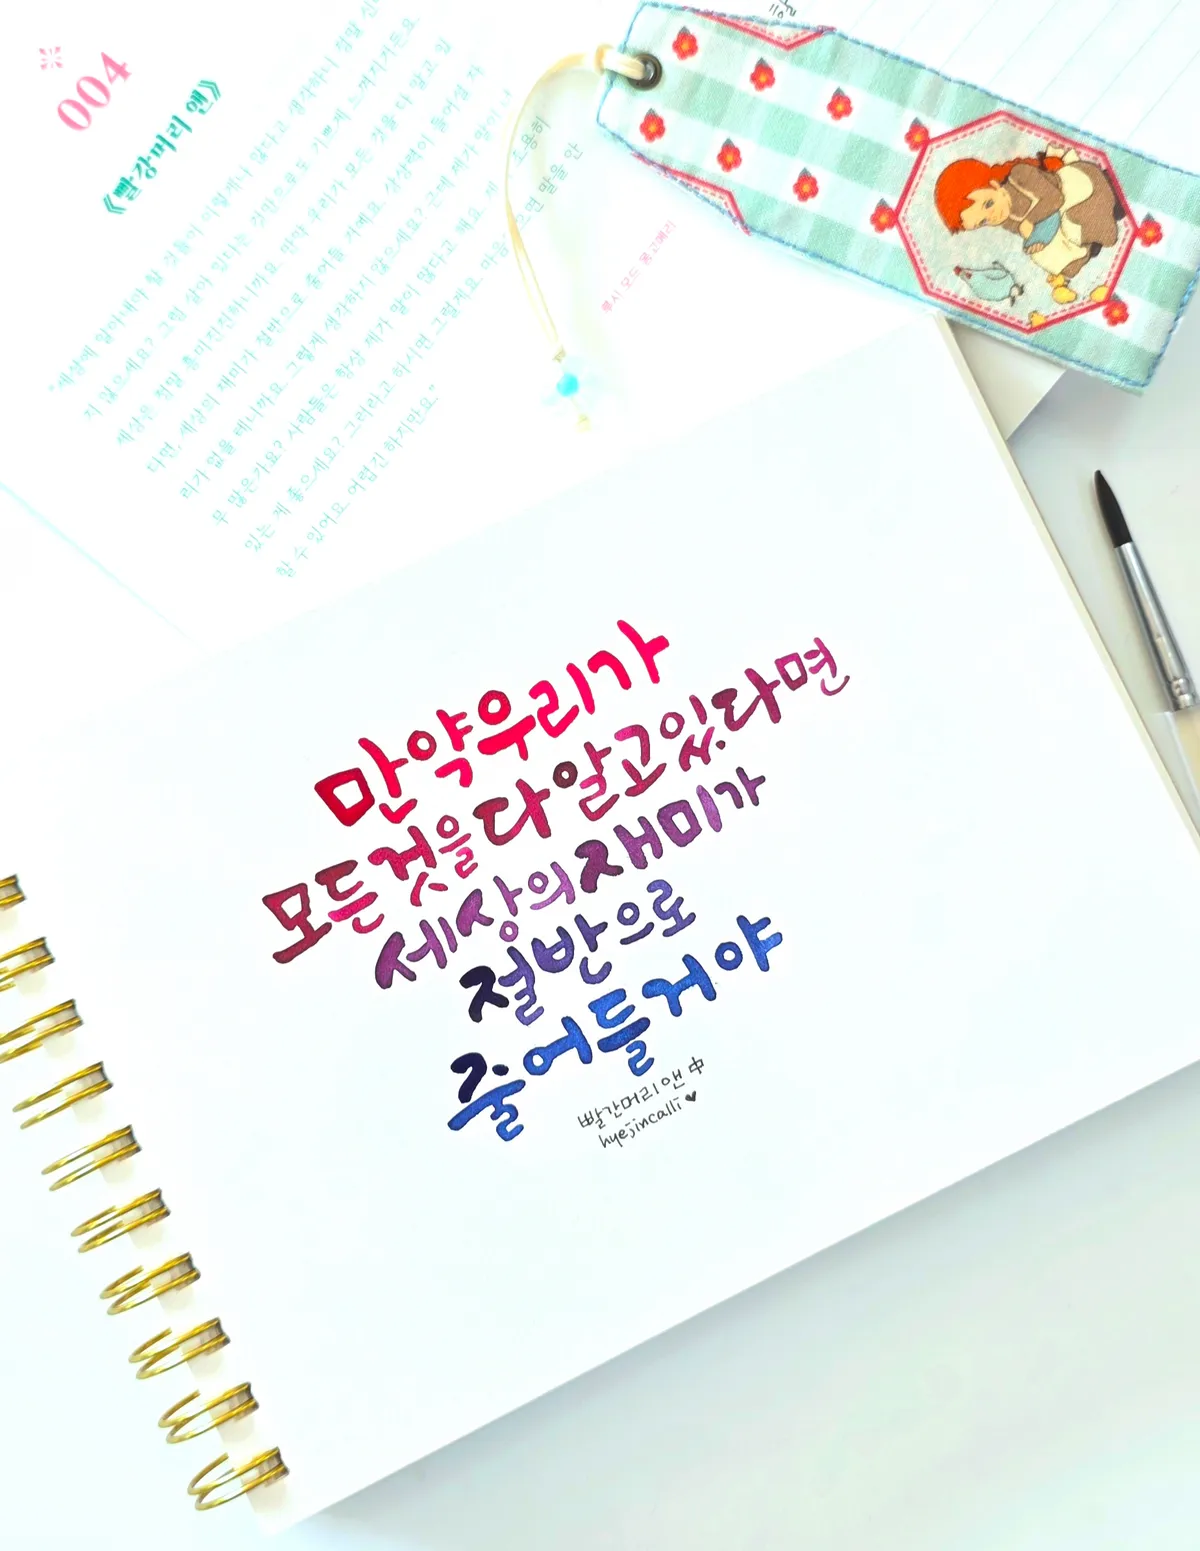 004
《빨강머리 앤》
"세상에 알아내야 할 것들이 이렇게나 많다고 생각하니 정말 신
나지 않으세요? 그럼 살아 있다는 것만으로도 기쁘게 느껴지거든요
세상은 정말 흥미진진하니까요. 만약 우리가 모든 것을 다 알고 있
다면, 세상의 재미가 절반으로 줄어들 거예요. 상상력이 들어설 자
리가 없을 테니까요. 그렇게 생각하지 않으세요? 근데 제가 말이 너
무 많은가요? 사람들은 항상 제가 말이 많다고 해요. 제 조용히
있는 게 좋으세요? 그러라고 하시면 그럴게요. 마음 으면 말을 안
할 수 있어요. 어렵긴 하지만요."
루시 모드 몽고메리
만약 우리가
모든 것을 다 알고 있다면
세상의 재미가
절반으로
줄어들 거야
빨간머리앤 中
hyejincalli ♥